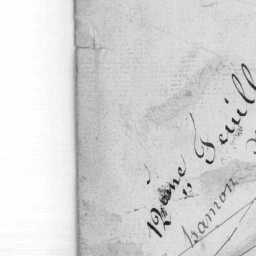 12eme Feuill
hamon